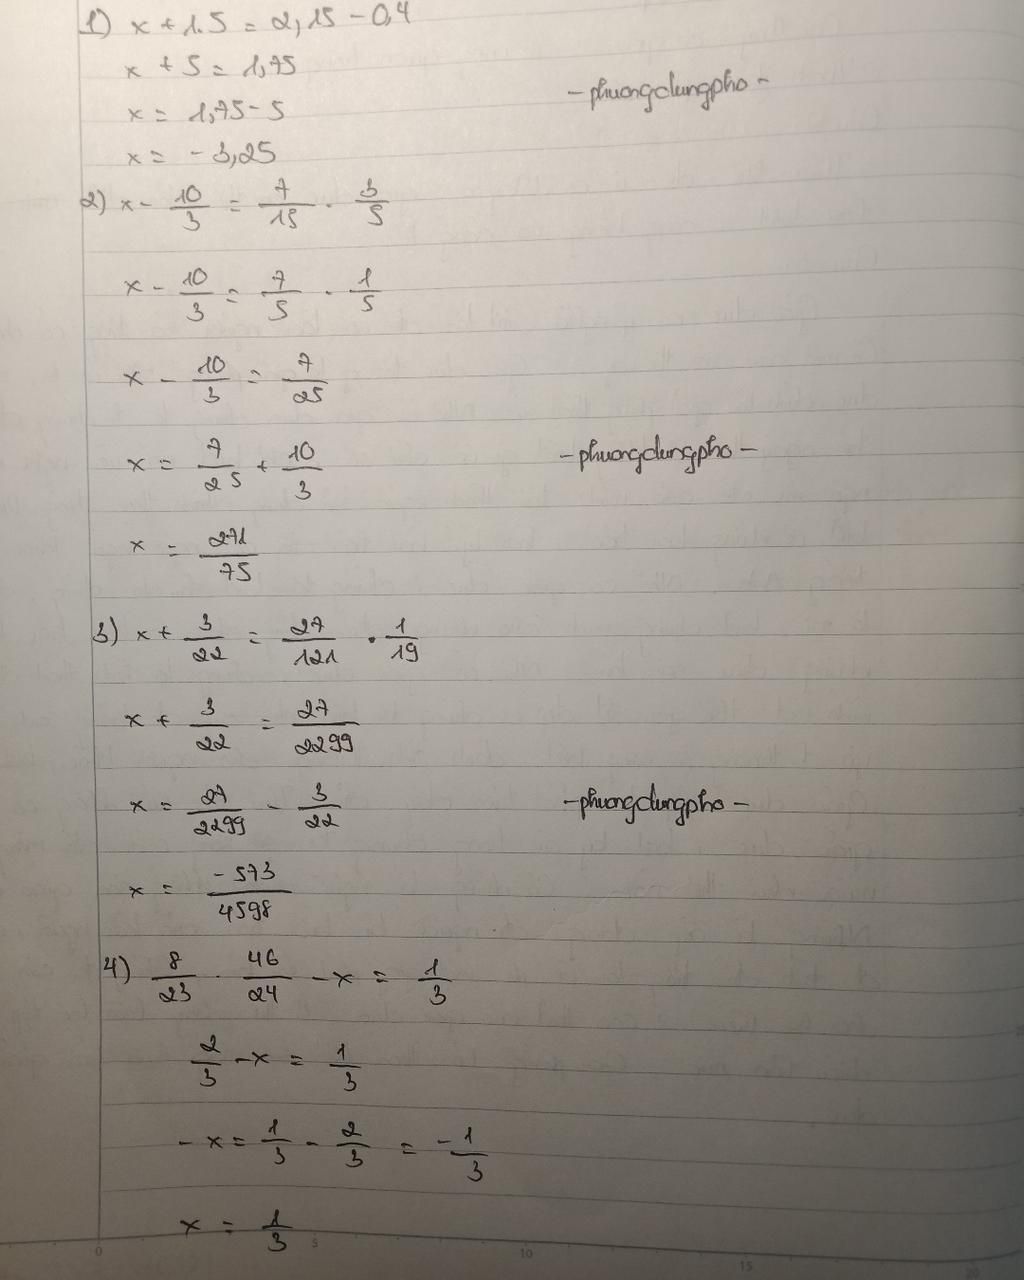 1) x + 1.5 = 2,15 - 0,4
x + 5 = 1,75
x = 1,75 - 5
- phuongdungpho -
x = - 3,25
2) x - 10/3 = 7/15 . 3/5
x - 10/3 = 7/5 . 1/5
x - 10/3 = 7/25
x = 7/25 + 10/3
- phuongdungpho -
x = 271/75
3) x + 3/22 = 27/121 . 1/19
x + 3/22 = 27/2299
x = 27/2299 - 3/22
- phuongdungpho -
x = -573/4598
4) 8/23 . 46/24 - x = 1/3
2/3 - x = 1/3
- x = 1/3 - 2/3 = -1/3
x = 1/3
0 5 10 15 20